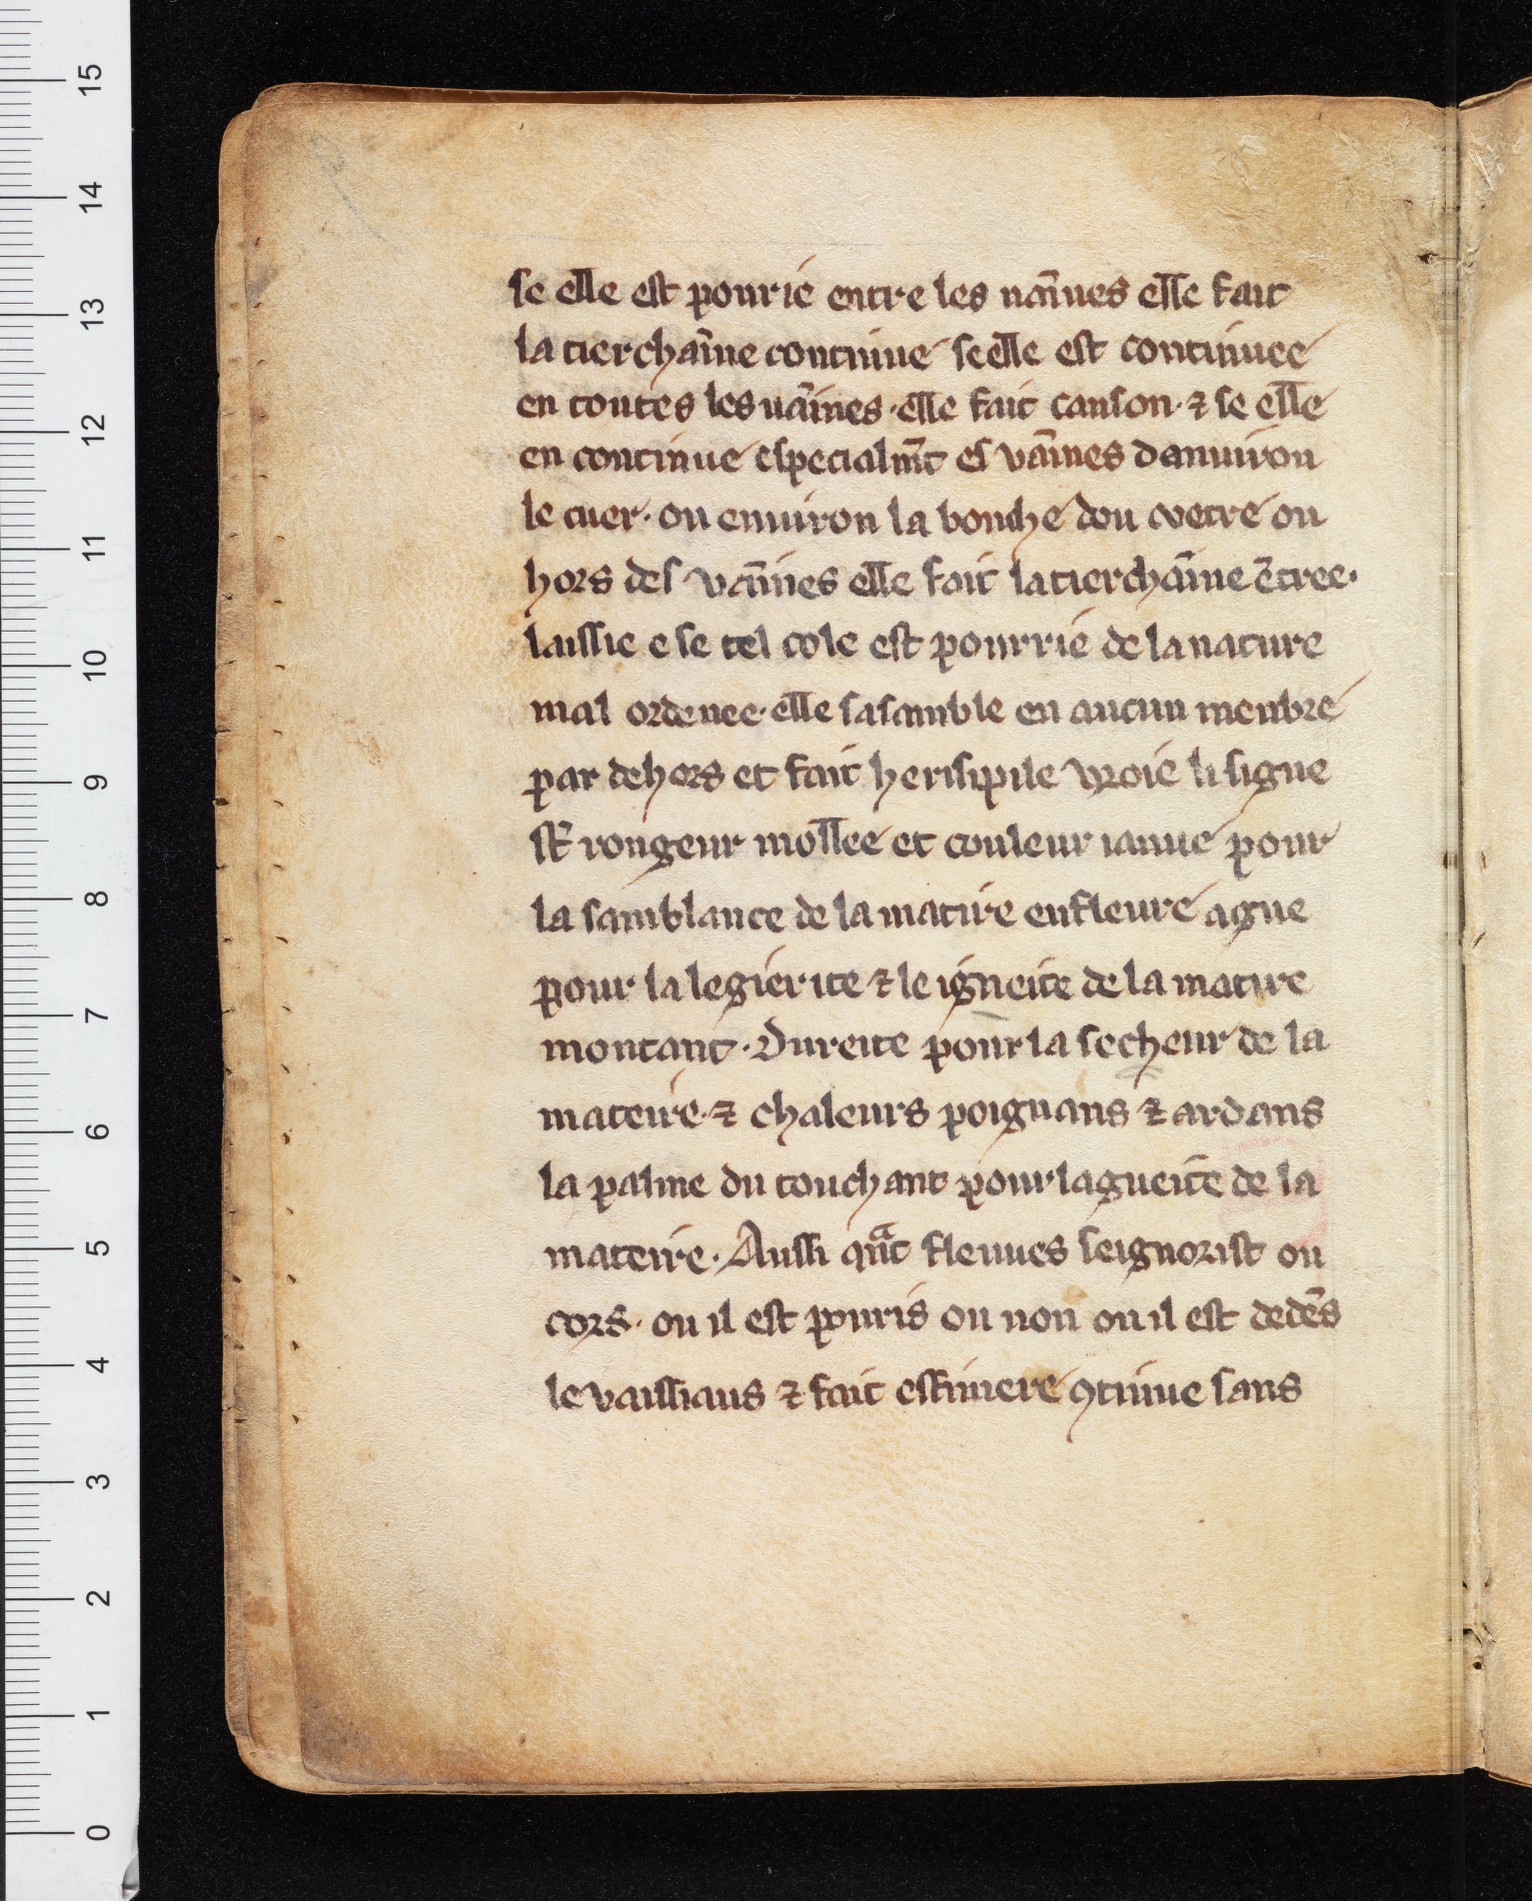 se elle est pourie entre les uãnues elle fait
la tierchaĩne continue se elle est continuee
en toutes les uaĩnes · elle fait causon · ⁊ se elle
en continue especialm̃t es vaĩnes danuiron
le cuer · ou enuiron la bouche dou vetre ou
hors des vaĩnes elle fait la tierchaĩne ẽtree ·
laissie e se tel cole est pourrie de la nature
mal ordenee · elle sasamble en aucun menbre
par dehors et fait herisipile vroie li signe
st̃ rougeur mollee et couleur iaune pour
la samblance de la matire enfleure ague
pour la legierite ⁊ le igneite de la matire
montant · Dureite pour la secheur de la
mateire · ⁊ chaleurs poignans ⁊ ardans
la palme du touchant pour lagueite de la
mateire · Aussi qñt fleuues seignorist ou
cors · ou il est pouris ou non ou il est dedẽs
le vaissiaus ⁊ fait effimere ꝯtinue sans